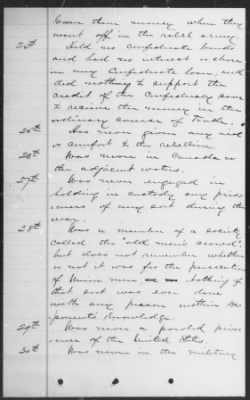 loan them money when they
went off in the rebel army
25th Held no Confederate bonds
and had no interest or share
in any Confederate loan and
did nothing to support the
credit of the Confederacy save
to receive the money in the
ordinary course of trade.
25th Has never given any aid
or comfort to the rebellion.
26th Was never in Canada or
the adjacent waters.
27th Was never engaged in
holding in custody any pris
oners of any sort during the
war.
28th Was a member of a society
called the "old men's
but does not remember whether
or not it was for the persecution
of Union men — — Nothing of
that sort was ever done
with any person within De
ponent's knowledge.
29th Was never a paroled pris
oner of the United States.
30th Was never in the military